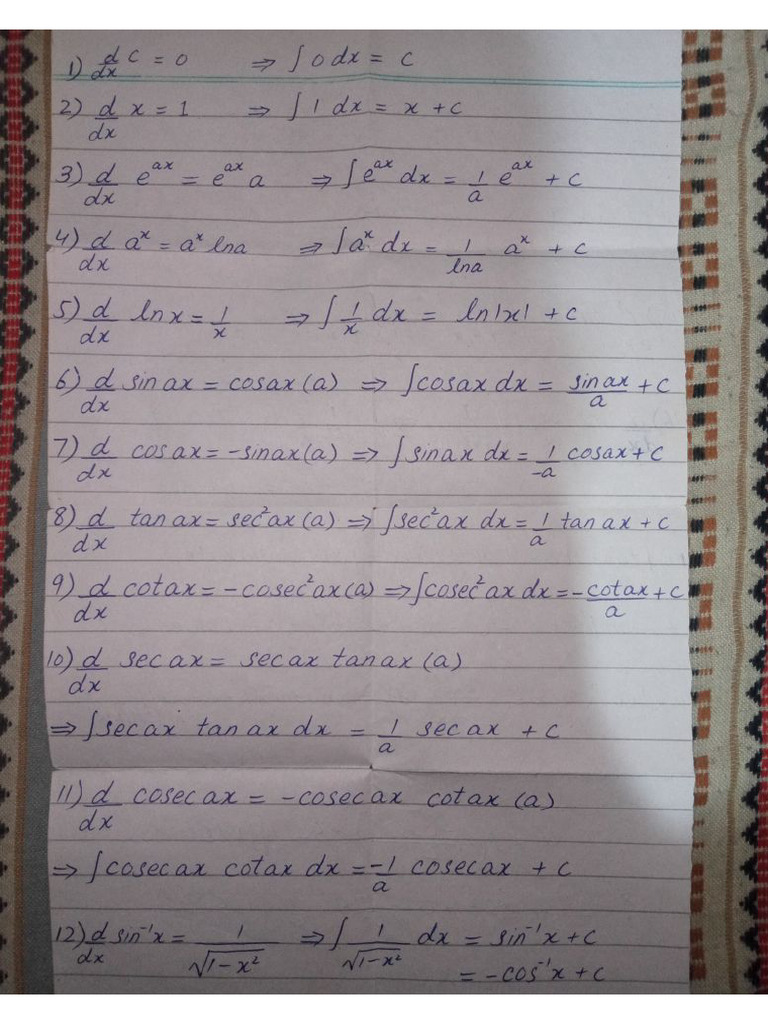 1) d/dx c = 0 ⇒ ∫ 0 dx = c
2) d/dx x = 1 ⇒ ∫ 1 dx = x + c
3) d/dx e^ax = e^ax a ⇒ ∫ e^ax dx = 1/a e^ax + c
4) d/dx a^x = a^x lna ⇒ ∫ a^x dx = 1/lna a^x + c
5) d/dx lnx = 1/x ⇒ ∫ 1/x dx = ln|x| + c
6) d/dx sinax = cosax(a) ⇒ ∫ cosax dx = sinax/a + c
7) d/dx cosax = -sinax(a) ⇒ ∫ sinax dx = 1/-a cosax + c
8) d/dx tanax = sec²ax(a) ⇒ ∫ sec²ax dx = 1/a tanax + c
9) d/dx cotax = -cosec²ax(a) ⇒ ∫ cosec²ax dx = -cotax/a + c
10) d/dx secax = secax tanax(a)
⇒ ∫ secax tanax dx = 1/a secax + c
11) d/dx cosecax = -cosecax cotax(a)
⇒ ∫ cosecax cotax dx = -1/a cosecax + c
12) d/dx sin⁻¹x = 1/√(1-x²) ⇒ ∫ 1/√(1-x²) dx = sin⁻¹x + c
= -cos⁻¹x + c